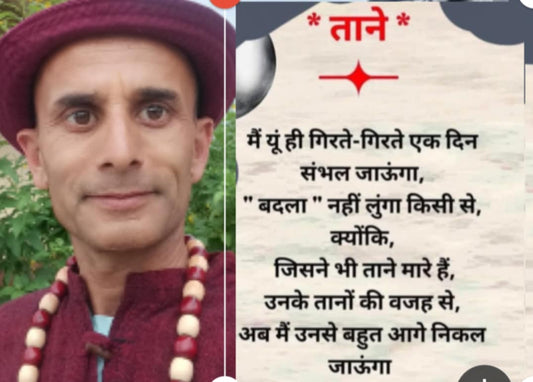 * ताने *
मैं यूं ही गिरते-गिरते एक दिन
संभल जाऊंगा,
" बदला " नहीं लुंगा किसी से,
क्योंकि,
जिसने भी ताने मारे हैं,
उनके तानों की वजह से,
अब मैं उनसे बहुत आगे निकल
जाऊंगा